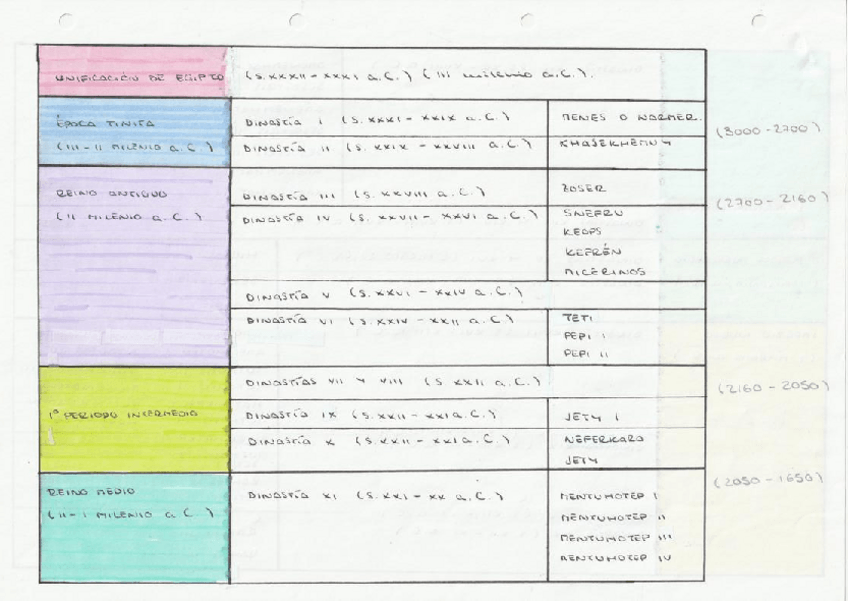 UNIFICACIÓN DE EGIPTO (S. XXXII - XXXI a.C.) (III milenio a.C.).
ÉPOCA TINITA
(III - II MILENIO a.C.)
DINASTÍA I (S. XXXI - XXIX a.C.) MENES O NARMER.
DINASTÍA II (S. XXIX - XXVIII a.C.) KHASEKHEMUY
(3000 - 2700)
REINO ANTIGUO
(II MILENIO a.C.)
DINASTÍA III (S. XXVIII a.C.) ZOSER
(2700 - 2160)
DINASTÍA IV (S. XXVII - XXVI a.C.) SNEFRU
KEOPS
KEFRÉN
MICERINOS
DINASTÍA V (S. XXVI - XXIV a.C.)
DINASTÍA VI (S. XXIV - XXII a.C.) TETI
PEPI I
PEPI II
1º PERIODO INTERMEDIO
DINASTÍAS VII Y VIII (S XXII a.C.)
(2160 - 2050)
DINASTÍA IX (S. XXII - XXI a.C.) JETY I
DINASTÍA X (S. XXII - XXI a.C.) NEFERKARO
JETY
REINO MEDIO
(II - I MILENIO a.C.)
DINASTÍA XI (S. XXI - XX a.C.) MENTUHOTEP I
MENTUHOTEP II
MENTUHOTEP III
MENTUHOTEP IV
(2050 - 1650)